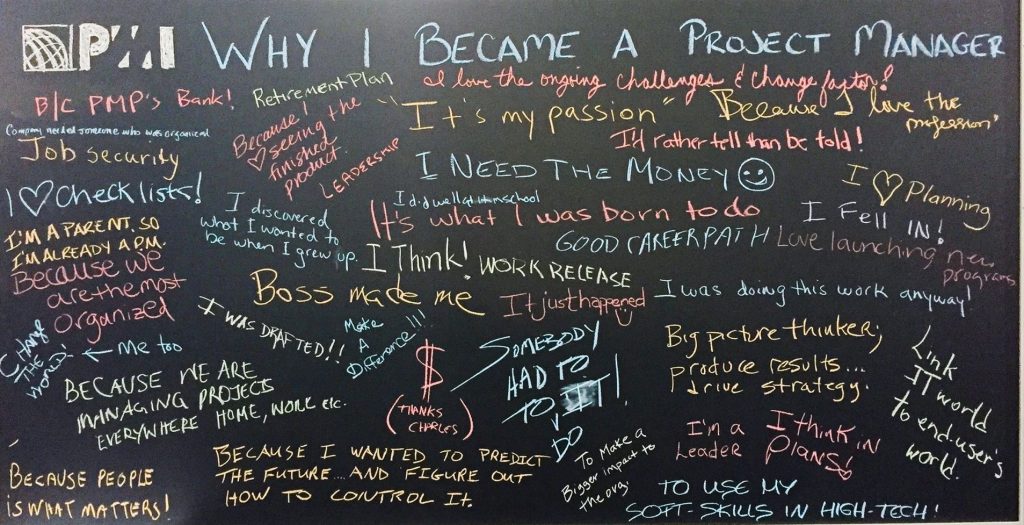 PMI WHY I BECAME A PROJECT MANAGER
B/C PMP's Bank!
Retirement Plan
I love the ongoing challenges & change factor!
Company needed someone who was organized
Job security
Because I
♡ seeing the
finished
product.
LEADERSHIP
It's my passion"
Because I love the
profession"
I'd rather tell than be told!
I NEED THE MONEY ☺
I ♡ Checklists!
I discovered
what I wanted to
be when I grew up.
I did well at
school
It's what I was born to do
I ♡ Planning
I FELL IN!
GOOD CAREER PATH
Love launching new
programs
I'M A PARENT. SO
I'M ALREADY A P.M.
Because we
are the most
organized
← Me too
I Think!
WORK RELEASE
Boss made me
It just happened
I was doing this work anyway!
I WAS DRAFTED!!
Make
A
Difference!!!
CHANGE
THE
WORLD!
$
(THANKS
CHARLES)
SOMEBODY
HAD TO
TO IT!
DO
Big picture thinker;
produce results...
drive strategy.
Link
IT world
to end-user's
world.
BECAUSE WE ARE
MANAGING PROJECTS
EVERYWHERE HOME, WORK etc.
BECAUSE PEOPLE
IS WHAT MATTERS!
BECAUSE I WANTED TO PREDICT
THE FUTURE....AND FIGURE OUT
HOW TO CONTROL IT.
To Make a
Bigger impact to
the org.
I'm a
Leader
I think in
Plans!
TO USE MY
SOFT-SKILLS IN HIGH-TECH!